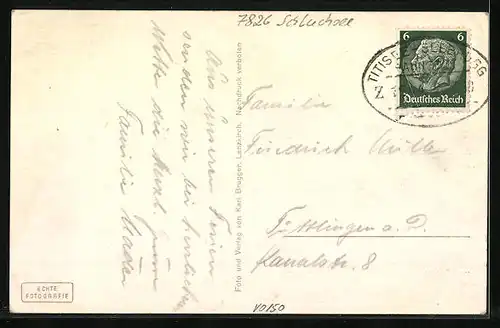 7826 Schluchsee
6 6
Deutsches Reich
TITISEE
Z
Aus unseren Ferien
senden wir bei herrlichem
Wetter die herzl. Grüsse
Familie
Familie
Friedrich Müller
Tuttlingen a. D.
Kanalstr. 8
Foto und Verlag von Karl Brugger, Lenzkirch. Nachdruck verboten
ECHTE
FOTOGRAFIE
V0150